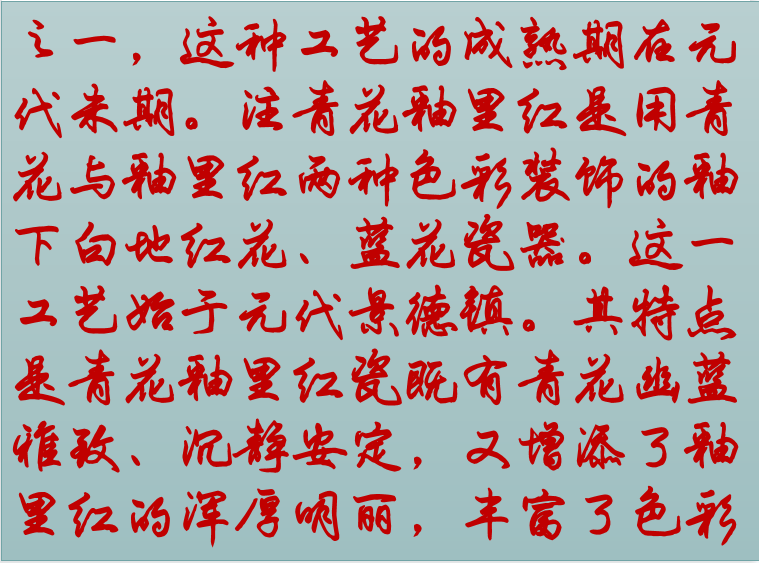 之一，这种工艺的成熟期在元
代末期。注青花釉里红是用青
花与釉里红两种色彩装饰的釉
下白地红花、蓝花瓷器。这一
工艺始于元代景德镇。其特点
是青花釉里红瓷既有青花幽蓝
雅致、沉静安定，又增添了釉
里红的浑厚明丽，丰富了色彩